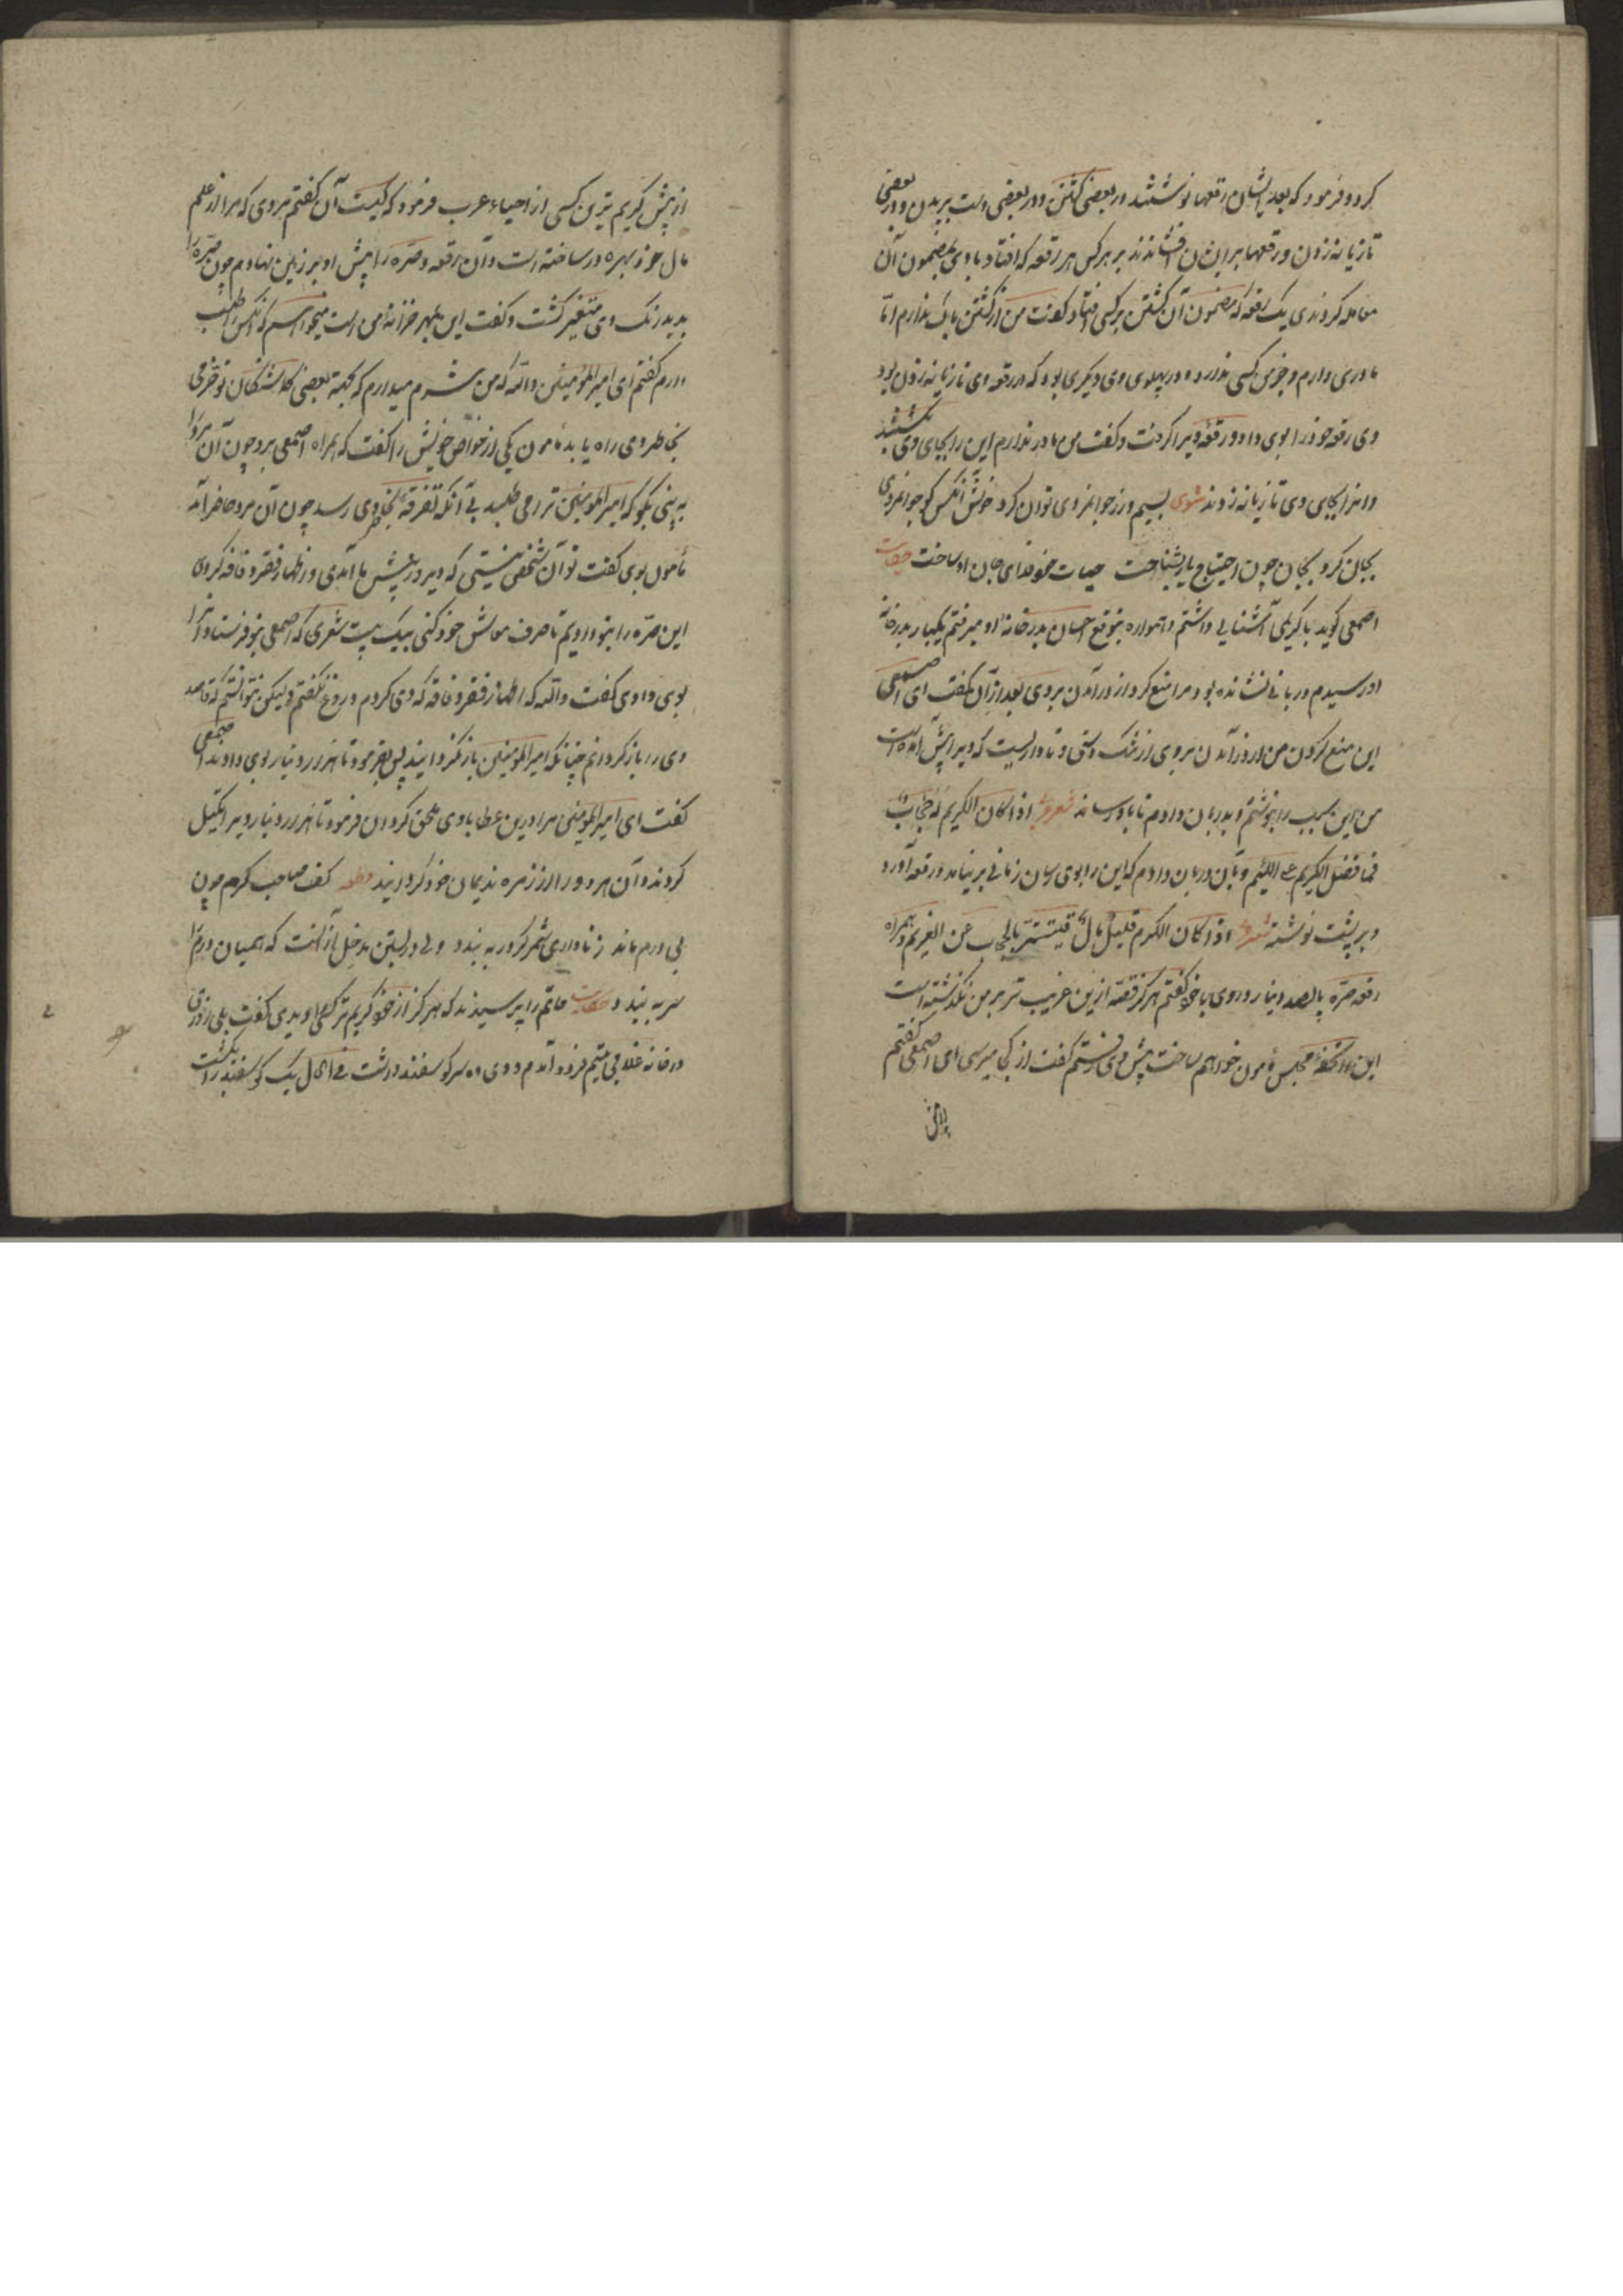 کرد و فرمود که بعد ایشان رقعها نوشتند در بعضی کشتن و در بعضی دست بریدن و در بعضی
تازیانه زدن و رقعها بر ایشان افشاندند بر هر کس هر رقعه که افتاد با وی بمضمون آن
معامله کردندی یک رقعه که مضمون آن کشتن بر کسی افتاد گفت من از کشتن باک ندارم امّا
مادری دارم و جز من کسی ندارد و در پهلوی وی دیگری بود که در رقعه وی تازیانه زدن بود
وی رقعه خود را بوی داد و رقعه ویرا گرفت و گفت من مادر ندارم این را بجای وی بکشتند
و انرا بجای وی تازیانه زدند مثنوی بسیم و زر جوانمردی توان کرد خوش آنکس کو جوانمردی
بجان کرد بجان چون احتیاج یار بشناخت حیات خود فدای جان او ساخت حکایت
اصمعی گوید با کریمی آشنایی داشتم و همواره بتوقع احسان بدر خانه او میرفتم یکبار بدر خانه
او رسیدم دربانی نشانده بود مرا منع کرد از درآمدن بر وی بعد از آن گفت ای اصمعی
این منع کردن من از درآمدن بر وی از تنگ دستی و ناداریست که ویرا پیش آمده است
من این بیت را بنوشتم و بدربان دادم تا باو رساند شعر عربی اذا کان الکریم له حجاب
فما فضل الکریم علی اللئیم و بآن دربان دادم که این را بوی رسان زمانی بر نیامد و رقعه آورد
و بر پشت نوشته شعر اذا کان الکریم قلیل مال تستّر بالحجاب عن الغریم و همراه
رقعه صرّه پانصد دینار در وی با خود گفتم هرگز قصّه ازین غریب تر بر من نگذشته است
این را تحفه مجلس مأمون خواهم ساخت پیش وی رفتم گفت از کجا میرسی ای اصمعی گفتم
از پیش کریم ترین کسی از احیاء عرب فرمود که کیست آن گفتم مردی که مرا از علم
مال خود بهره ور ساخته است و آن رقعه و صرّه را پیش او بر زمین نهادم چون صرّه را
بدید رنگ وی متغیر گشت و گفت این بمهر خزانه من است میخواهم که آنکس را طلب
دارم گفتم ای امیر المؤمنین والله که من شرم میدارم که بجهة بعضی گماشتگان تو خوفی
بخاطر وی راه یابد مأمون یکی از خواص خویش را گفت که همراه اصمعی برو چون آن مرد را
به بینی بگو که امیر المؤمنین ترا می طلبد بی آنکه تفرقه بخاطر وی رسد چون آن مرد حاضر آمد
مأمون بوی گفت تو آن شخص نیستی که دیروز پیش ما آمدی و اظهار فقر و فاقه کردی
این صرّه را بتو دادیم تا صرف معاش خود کنی بیک بیت شعری که اصمعی بتو فرستاد آنرا
بوی دادی گفت والله که اظهار فقر و فاقه که دی کردم دروغ نگفتم ولیکن نتوانستم که قاصد
وی را بازگردانم چنانکه امیر المؤمنین بازنگردانید پس بفرمود تا هزار دینار بوی دادند اصمعی
گفت ای امیر المؤمنین مرا درین عطا با وی ملحق گردان فرمود تا هزار دینار ویرا تکمیل
کردند و آن مرد را از زمره ندیمان خود گردانید قطعه کف صاحب کرم چون
بی درم ماند ز ناداری شمر گر در به بندد ولی در بستن مدخل ازآنست که همیان درم را
سر به بندد حکایت حاتم را پرسیدند که هرگز از خود کریم تر کسی دیدی گفت بلی روزی
در خانه غلامی یتیم فرود آمدم و وی ده سر گوسفند داشت فی الحال یک گوسفند را بکشت